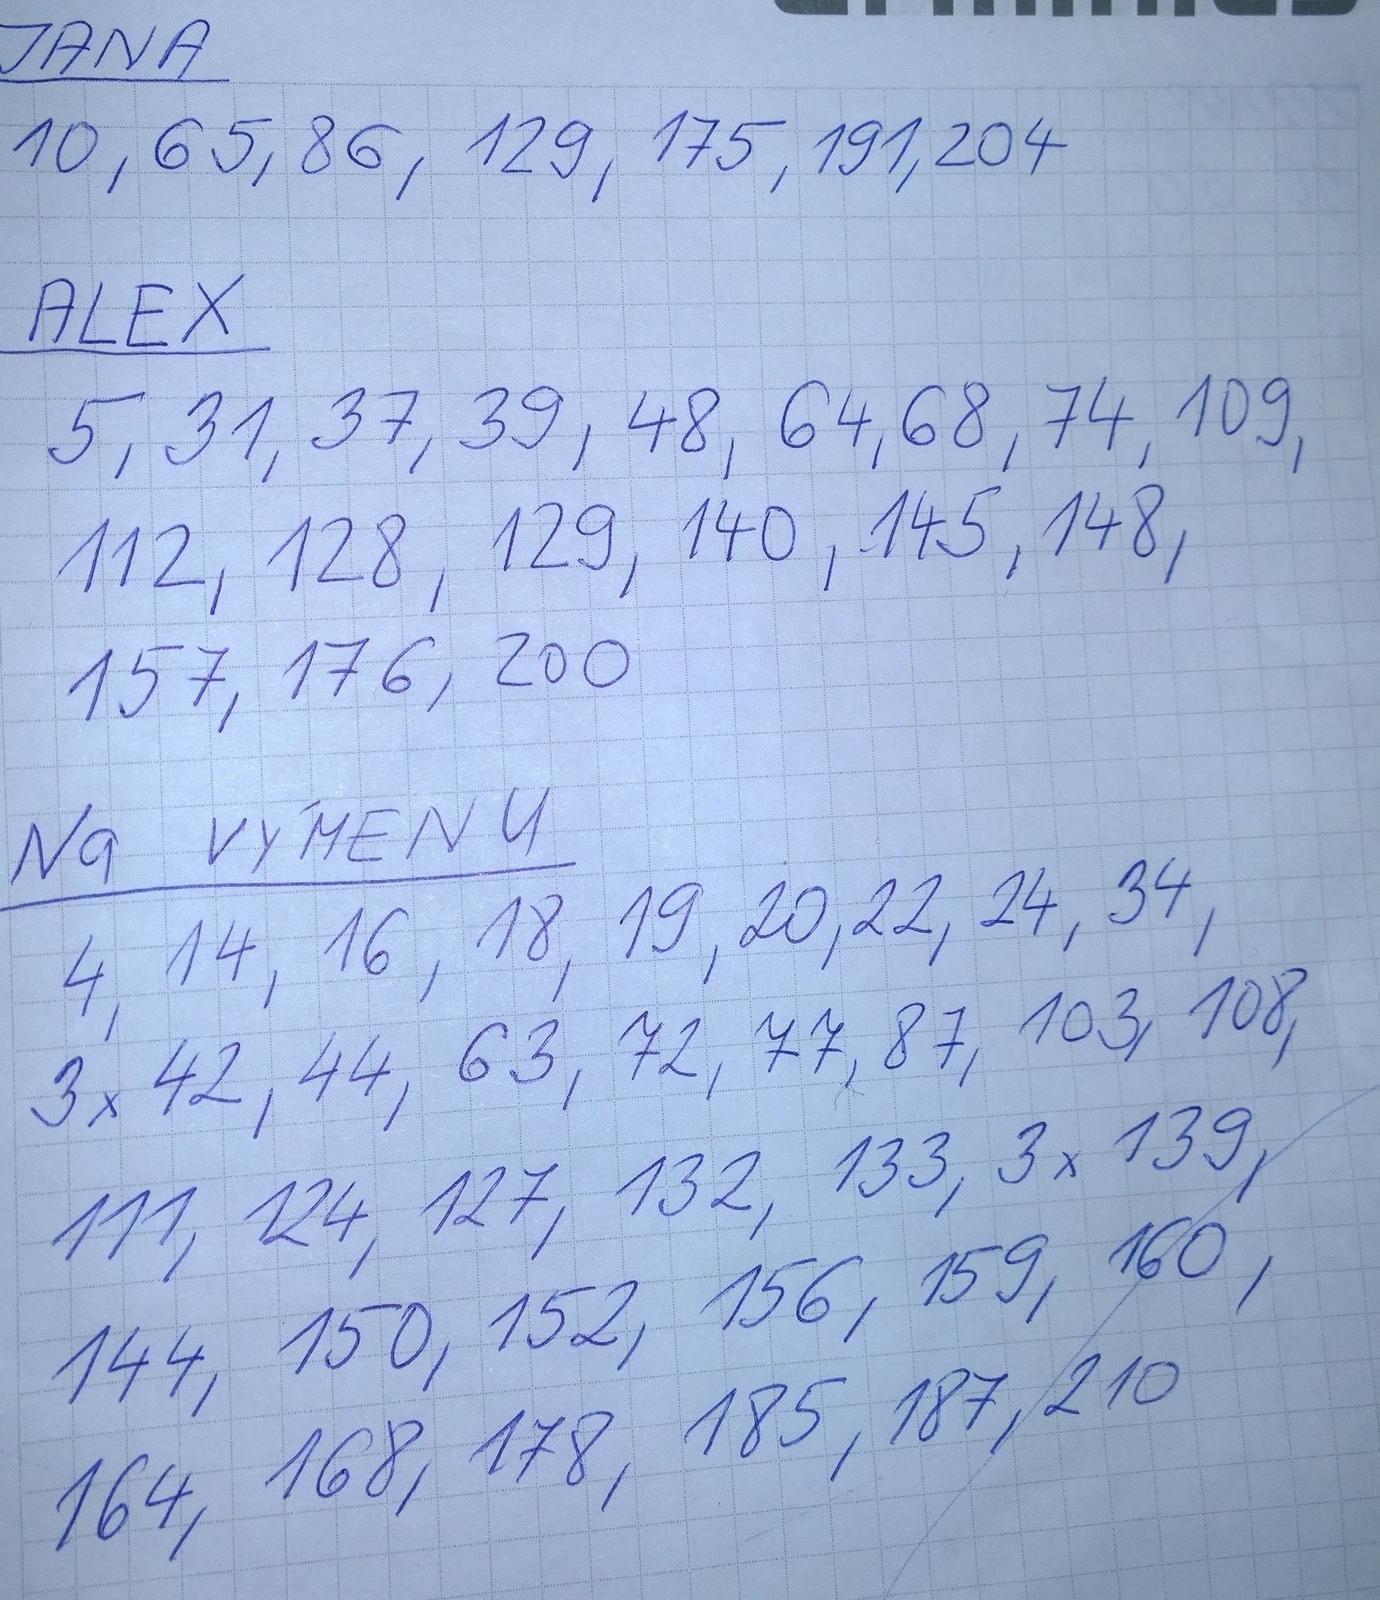 JANA
10, 65, 86, 129, 175, 191, 204
ALEX
5, 31, 37, 39, 48, 64, 68, 74, 109,
112, 128, 129, 140, 145, 148,
157, 176, 200
Na VÝMENU
4, 14, 16, 18, 19, 20, 22, 24, 34,
3x 42, 44, 63, 72, 77, 87, 103, 108,
111, 124, 127, 132, 133, 3x 139,
144, 150, 152, 156, 159, 160,
164, 168, 178, 185, 187, 210